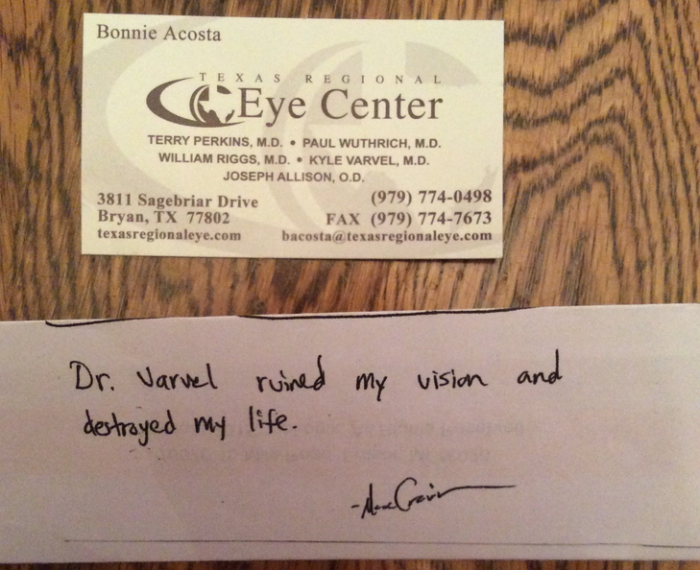 Bonnie Acosta
TEXAS REGIONAL
Eye Center
TERRY PERKINS, M.D. • PAUL WUTHRICH, M.D.
WILLIAM RIGGS, M.D. • KYLE VARVEL, M.D.
JOSEPH ALLISON, O.D.
3811 Sagebriar Drive (979) 774-0498
Bryan, TX 77802 FAX (979) 774-7673
texasregionaleye.com bacosta@texasregionaleye.com
Dr. Varvel ruined my vision and
destroyed my life.